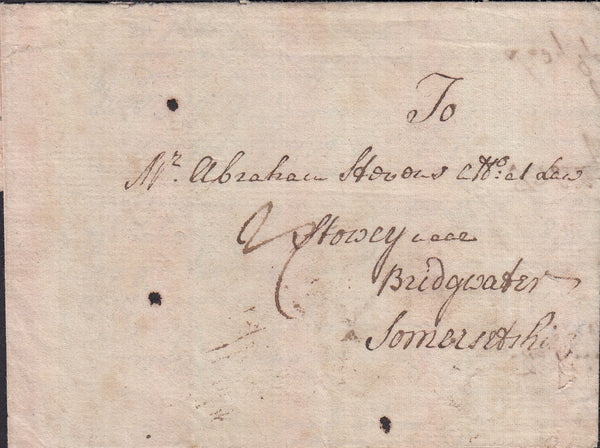 To
Mr. Abraham Stevens Atto: at Law
Stowey near
Bridgwater
Somersetshi